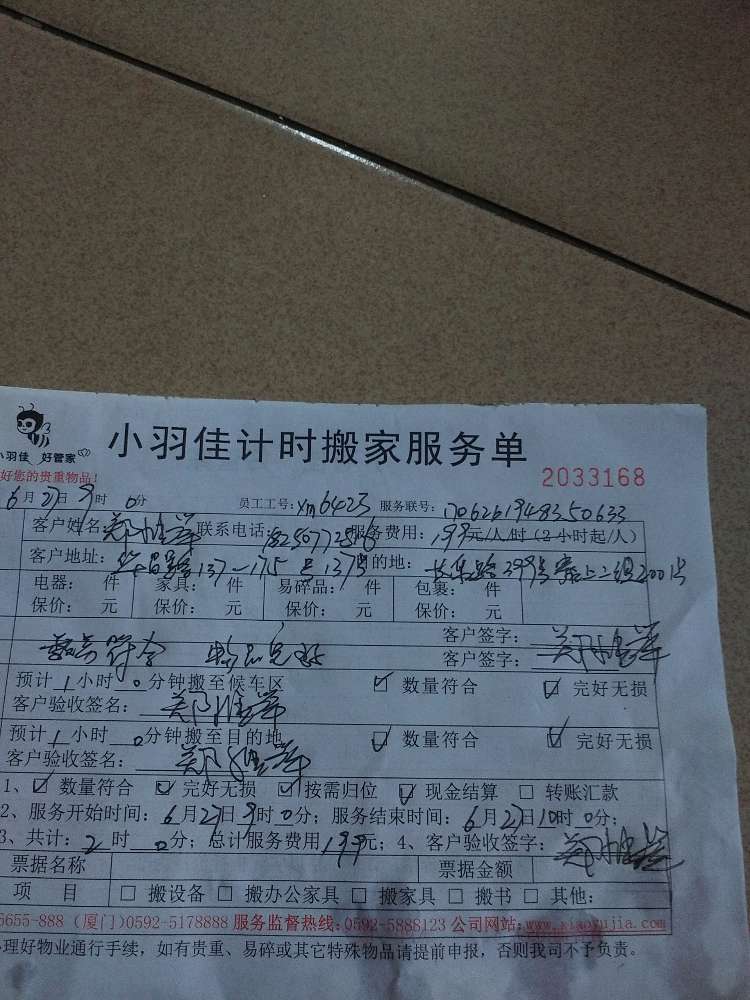 小羽佳计时搬家服务单
小羽佳 好管家
2033168
好您的贵重物品！
6月27日9时0分 员工工号：xm6423 服务联号：
客户姓名： 联系电话： 服务费用：199元/人/时（2小时起/人）
客户地址： 137-175 137号 目的地：长乐路299号 2001出
电器： 件 家具： 件 易碎品： 件 包裹： 件
保价： 元 保价： 元 保价： 元 保价： 元
客户签字：
数量符合 物品完好 客户签字：
预计1小时0分钟搬至候车区 ☑ 数量符合 ☑ 完好无损
客户验收签名：
预计1小时0分钟搬至目的地 ☑ 数量符合 ☑ 完好无损
客户验收签名：
1、☑ 数量符合 ☑ 完好无损 ☑ 按需归位 ☑ 现金结算 □ 转账汇款
2、服务开始时间：6月27日9时0分；服务结束时间：6月27日10时0分；
3、共计：2时0分；总计服务费用199元；4、客户验收签字：
票据名称 票据金额
项 目 □ 搬设备 □ 搬办公家具 □ 搬家具 □ 搬书 □ 其他：
5655-888 (厦门)0592-5178888 服务监督热线：0592-5888123 公司网站：www.xiaoyujia.com
理好物业通行手续，如有贵重、易碎或其它特殊物品请提前申报，否则我司不予负责。